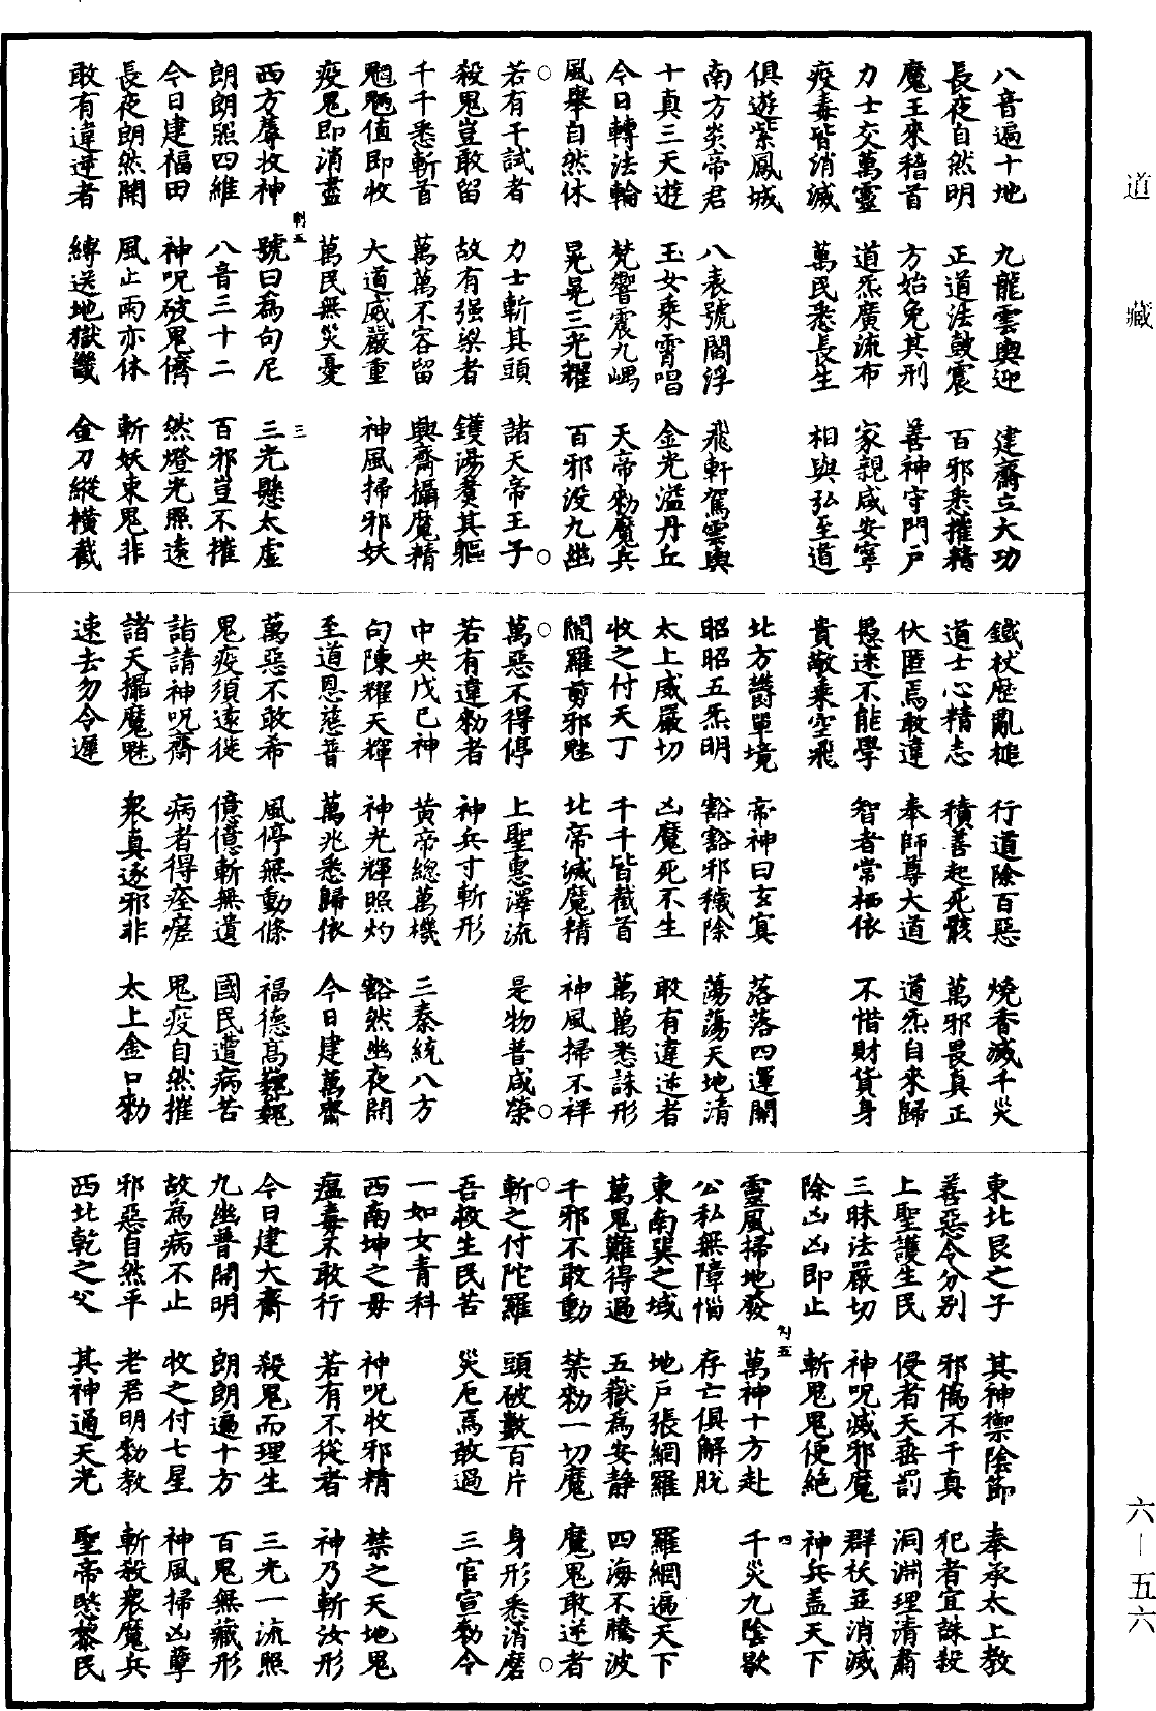 道藏
八音遍十地 九龍雲輿迎 建齋立大功
長夜自然明 正道法鼓震 百邪悉摧精
魔王來稽首 方始免其刑 善神守門戶
力士交萬靈 道炁廣流布 家親咸安寧
疫毒皆消滅 萬民悉長生 相與弘至道
俱遊紫鳳城
南方炎帝君 八表號閻浮 飛軒駕雲輿
十真三天遊 玉女乘霄唱 金光溢丹丘
今日轉法輪 梵響震九嵎 天帝勑魔兵
風舉自然休 晃晃三光耀 百邪没九幽
若有干試者 力士斬其頭 諸天帝王子
殺鬼豈敢留 故有强梁者 鑊湯煑其軀
千千悉斬首 萬萬不容留 興齋攝魔精
魍魎值即收 大道威嚴重 神風掃邪妖
疫鬼即消盡 萬民無災憂
三
西方蓐收神 號曰爲句尼 三光懸太虛
朗朗照四維 八音三十二 百邪豈不摧
今日建福田 神呪破鬼儔 然燈光照遠
長夜朗然開 風止雨亦休 斬妖束鬼非
敢有違逆者 縛送地獄畿 金刀縱橫截
鐵杖歷亂搥 行道除百惡 燒香滅千災
道士心精志 積善起死骸 萬邪畏真正
伏匿焉敢違 奉師尊大道 道炁自來歸
愚迷不能學 智者常栖依 不惜財貨身
貴敬乘空飛
北方鬱單境 帝神曰玄冥 落落四運開
昭昭五炁明 豁豁邪穢除 蕩蕩天地清
太上威嚴切 凶魔死不生 敢有違逆者
收之付天丁 千千皆截首 萬萬悉誅形
閻羅剪邪魅 北帝滅魔精 神風掃不祥
萬惡不得停 上聖惠澤流 是物普咸榮
若有違勑者 神兵寸斬形
中央戊己神 黃帝總萬機 三秦統八方
句陳耀天輝 神光輝照灼 豁然幽夜開
至道恩慈普 萬兆悉歸依 今日建萬齋
萬惡不敢希 風停無動條 福德高巍巍
鬼疫須遠徙 億億斬無遺 國民遭病苦
詣請神呪齋 病者得痊瘥 鬼疫自然摧
諸天攝魔魅 衆真逐邪非 太上金口勑
速去勿令遲
東北艮之子 其神禦陰節 奉承太上教
善惡令分別 邪僞不干真 犯者宜誅殺
上聖護生民 侵者天垂罰 洞淵理清肅
三昧法嚴切 神呪滅邪魔 群袄並消滅
除凶凶即止 斬鬼鬼便絕 神兵蓋天下
四
靈風掃地發 萬神十方赴 千災九陰歇
公私無障惱 存亡俱解脫
東南巽之域 地戶張網羅 羅網遍天下
萬鬼難得過 五嶽爲安静 四海不騰波
千邪不敢動 禁勑一切魔 魔鬼敢逆者
斬之付陀羅 頭破數百片 身形悉消磨
吾救生民苦 災厄焉敢過 三官宣勑令
一如女青科
西南坤之毋 神呪收邪精 禁之天地鬼
瘟毒不敢行 若有不從者 神乃斬汝形
今日建大齋 殺鬼而理生 三光一流照
九幽普開明 朗朗遍十方 百鬼無藏形
故爲病不止 收之付七星 神風掃凶孽
邪惡自然平 老君明勑教 斬殺衆魔兵
西北乾之父 其神通天光 聖帝愍黎民
六—五六